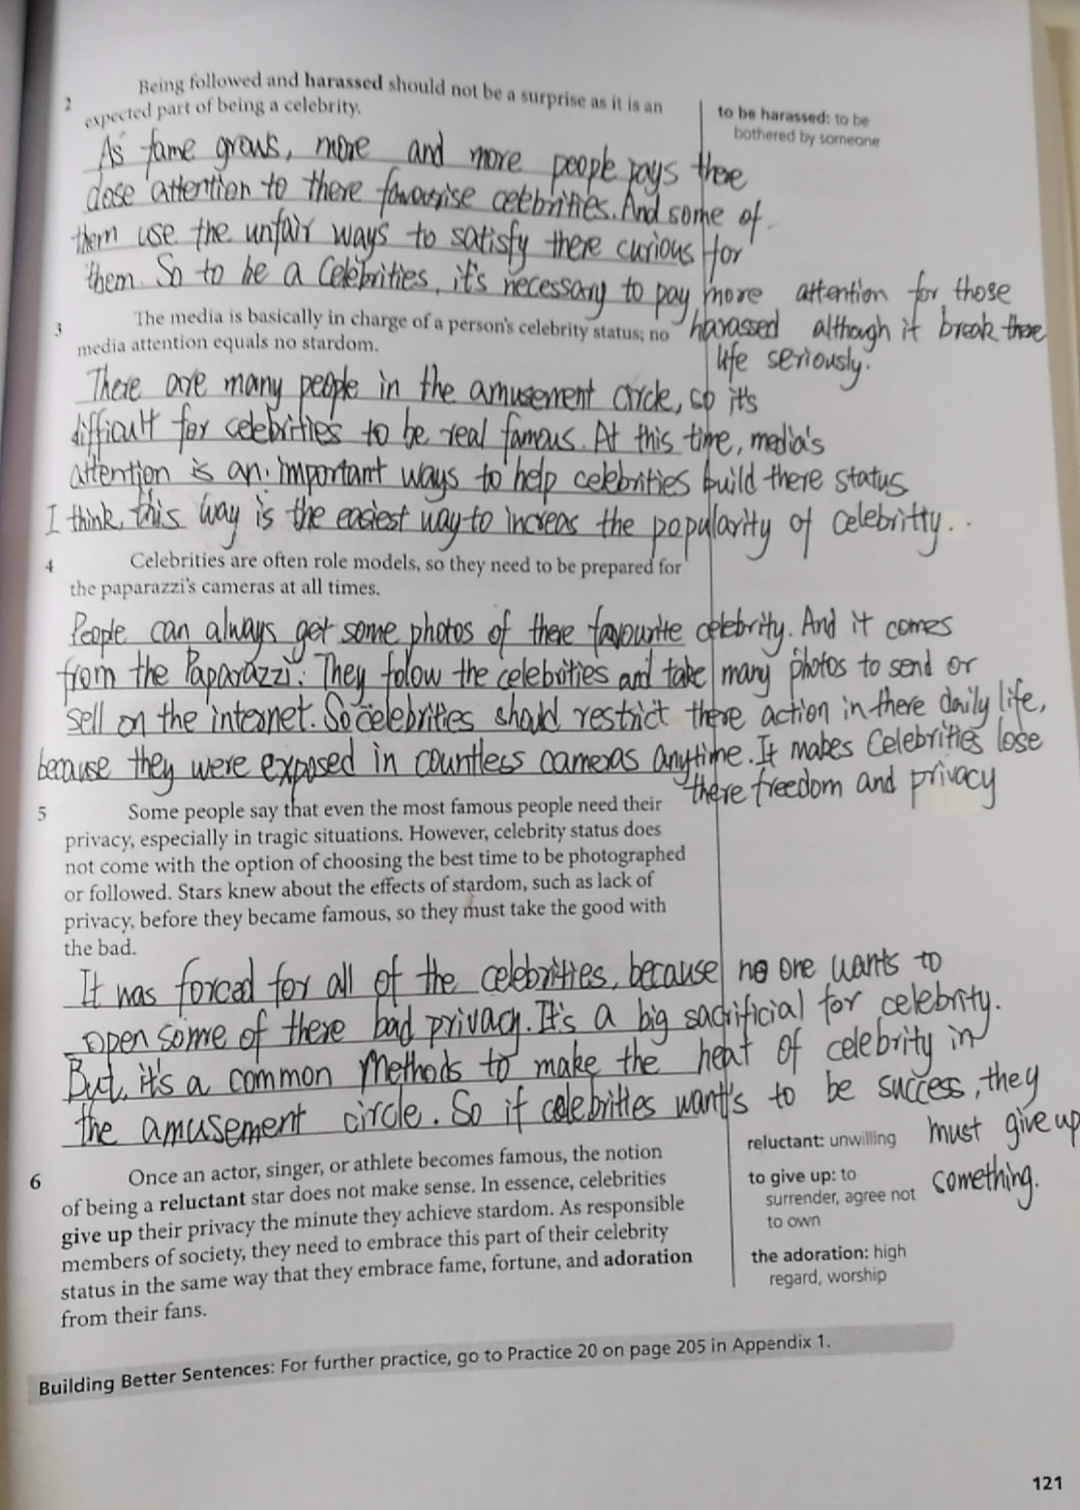 2 Being followed and harassed should not be a surprise as it is an
expected part of being a celebrity.
to be harassed: to be
bothered by someone
As fame grows, more and more people pays there
close attention to there favourise celebrities. And some of
them use the unfair ways to satisfy there curious for
them. So to be a Celebrities, it's necessary to pay more attention for those
harassed although it break there
life seriously.
3 The media is basically in charge of a person's celebrity status; no
media attention equals no stardom.
There are many people in the amusement circle, so it's
difficult for celebirties to be real famous. At this time, media's
attention is an important ways to help celebrities build there status
I think, this way is the easiest way to increas the popularity of celebritty.
4 Celebrities are often role models, so they need to be prepared for
the paparazzi's cameras at all times.
People can always get some photos of there favourite celebrity. And it comes
from the Paparazzi. They folow the celebrities and take many photos to send or
sell on the internet. So celebrities should restrict there action in there daily life,
because they were exposed in countless cameras anytime. It makes Celebrities lose
there freedom and privacy
5 Some people say that even the most famous people need their
privacy, especially in tragic situations. However, celebrity status does
not come with the option of choosing the best time to be photographed
or followed. Stars knew about the effects of stardom, such as lack of
privacy, before they became famous, so they must take the good with
the bad.
It was forced for all of the celebrities, because no one wants to
open some of there bad privacy. It's a big sacrificial for celebrity.
But, it's a common methods to make the heat of celebrity in
the amusement circle. So if celebrities want's to be success, they
must give up
something.
reluctant: unwilling
to give up: to
surrender, agree not
to own
the adoration: high
regard, worship
6 Once an actor, singer, or athlete becomes famous, the notion
of being a reluctant star does not make sense. In essence, celebrities
give up their privacy the minute they achieve stardom. As responsible
members of society, they need to embrace this part of their celebrity
status in the same way that they embrace fame, fortune, and adoration
from their fans.
Building Better Sentences: For further practice, go to Practice 20 on page 205 in Appendix 1.
121